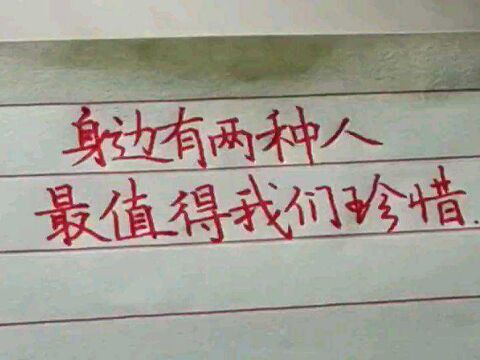 身边有两种人
最值得我们珍惜.